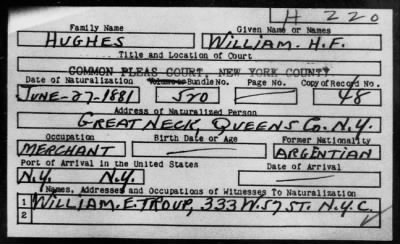 H 220
Family Name Given Name or Names
HUGHES WILLIAM. H.F.
Title and Location of Court
COMMON PLEAS COURT, NEW YORK COUNTY
Date of Naturalization Volume or Bundle No. Page No. Copy of Record No.
JUNE-27-1881 570 48
Address of Naturalized Person
GREAT NECK, QUEENS CO. N.Y.
Occupation Birth Date or Age Former Nationality
MERCHANT ARGENTIAN
Port of Arrival in the United States Date of Arrival
N.Y. N.Y.
Names, Addresses and Occupations of Witnesses To Naturalization
1 WILLIAM. E. TROUP, 333 W. 57 ST. N.Y.C.
2